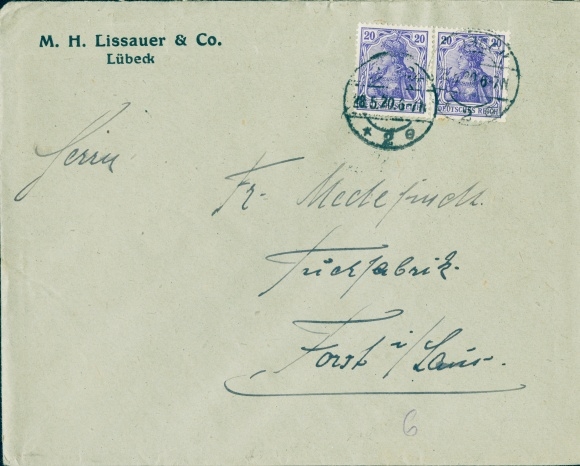 M. H. Lissauer & Co.
Lübeck
20 20
20 20
DEUTSCHES REICH
5.20.6-7N
* 2 e
Herrn
Fr.
Tuchfabrik.
Forst i/Laus.
6